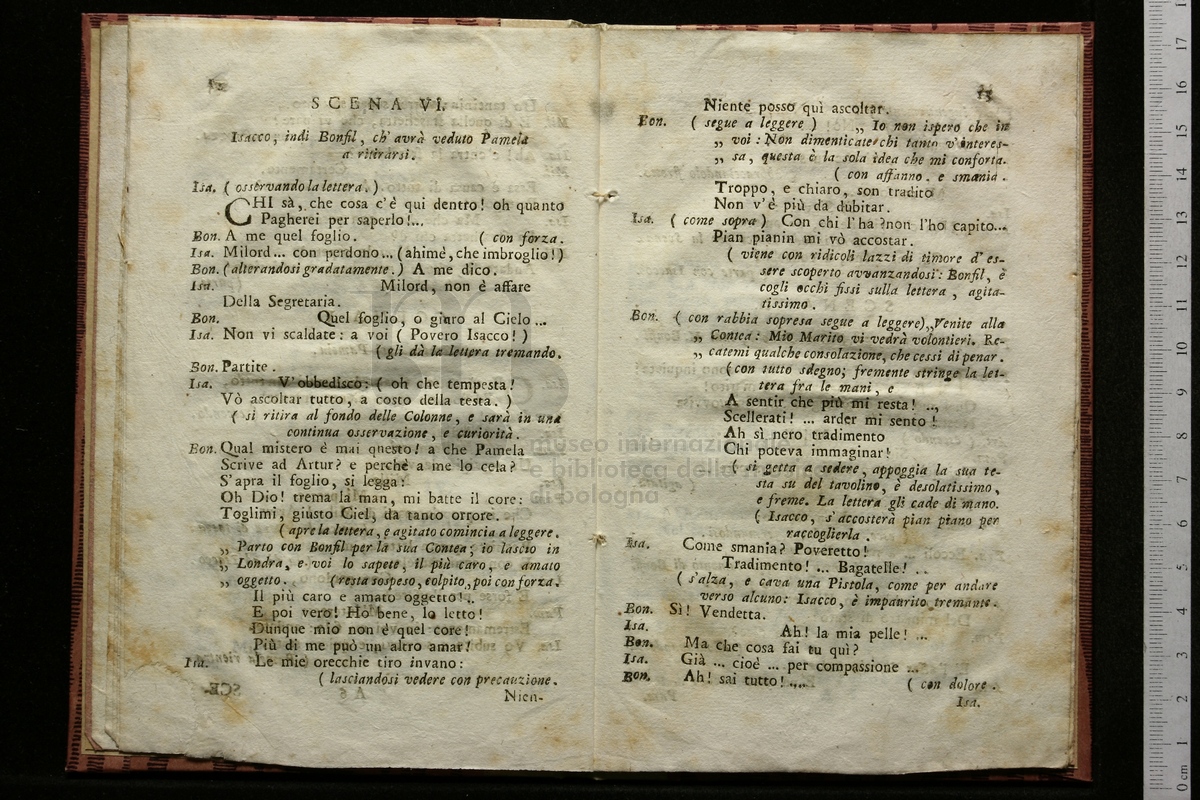 12
SCENA VI.
Isacco, indi Bonfil, ch' avrà veduto Pamela
a ritirarsi.
Isa. ( osservando la lettera. )
CHI sà, che cosa c'è qui dentro! oh quanto
Pagherei per saperlo!...
Bon. A me quel foglio. ( con forza.
Isa. Milord... con perdono... (ahimè, che imbroglio!)
Bon. (alterandosi gradatamente.) A me dico.
Isa. Milord, non è affare
Della Segretaria.
Bon. Quel foglio, o giuro al Cielo ...
Isa. Non vi scaldate: a voi ( Povero Isacco! )
( gli dà la lettera tremando.
Bon. Partite.
Isa. V'obbedisco: ( oh che tempesta!
Vò ascoltar tutto, a costo della testa. )
( si ritira al fondo delle Colonne, e sarà in una
continua osservazione, e curiorità.
Bon. Qual mistero è mai questo! a che Pamela
Scrive ad Artur? e perchè a me lo cela?
S'apra il foglio, si legga:
Oh Dio! trema la man, mi batte il core:
Toglimi, giusto Ciel, da tanto orrore.
( apre la lettera, e agitato comincia a leggere.
„ Parto con Bonfil per la sua Contea; io lascio in
„ Londra, e voi lo sapete, il più caro, e amato
„ oggetto. (resta sospeso, colpito, poi con forza.
Il più caro e amato oggetto!..
E poi vero! Ho bene, lo letto!
Dunque mio non è quel core!
Più di me può un altro amar!
Isa. Le mie orecchie tiro invano:
( lasciandosi vedere con precauzione.
A 6
Nien-
13
Niente posso quì ascoltar.
Bon. ( segue a leggere ) „ Io non ispero che in
„ voi: Non dimenticate chi tanto v'interes-
„ sa, questa è la sola idea che mi conforta.
( con affanno. e smania.
Troppo, e chiaro, son tradito
Non v'è più da dubitar.
Isa. ( come sopra ) Con chi l'ha? non l'ho capito...
Pian pianin mi vò accostar.
( viene con ridicoli lazzi di timore d'es-
sere scoperto avvanzandosi: Bonfil, è
cogli occhi fissi sulla lettera, agita-
tissimo.
Bon. ( con rabbia sopresa segue a leggere) „Venite alla
„ Contea: Mio Marito vi vedrà volontieri. Re-
„ catemi qualche consolazione, che cessi di penar.
(con tutto sdegno; fremente stringe la let-
tera fra le mani, e
A sentir che più mi resta! ..,
Scellerati! ... arder mi sento!
Ah sì nero tradimento
Chi poteva immaginar!
( si getta a sedere, appoggia la sua te-
sta su del tavolino, è desolatissimo,
e freme. La lettera gli cade di mano.
( Isacco, s'accosterà pian piano per
raccoglierla.
Isa. Come smania? Poveretto!
Tradimento! ... Bagatelle! ..
( s'alza, e cava una Pistola, come per andare
verso alcuno: Isacco, è impaurito tremante.
Bon. Sì! Vendetta.
Isa. Ah! la mia pelle! ...
Bon. Ma che cosa fai tu quì?
Isa. Già ... cioè ... per compassione ...
Bon. Ah! sai tutto!..... ( con dolore.
Isa.